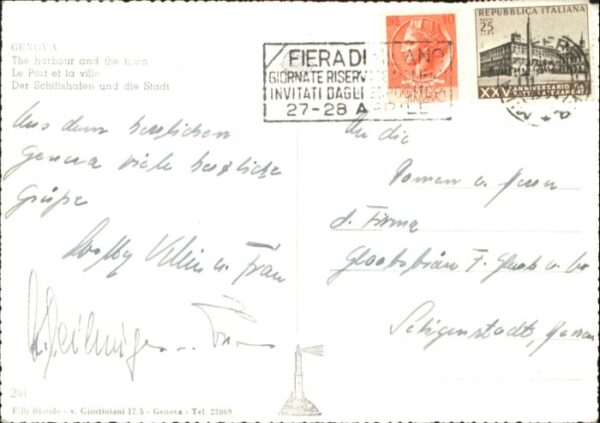 GENOVA
The harbour and the town
Le Port et la ville
Der Schiffshafen und die Stadt
Aus dem herrlichen
Genova viele herzliche
Grüße
u. Frau
291
F.lli Biondo - v. Giustiniani 17/5 - Genova - Tel. 22069
FIERA DI MILANO
GIORNATE RISERV
INVITATI DAGLI ESPOSITORI
27-28 APRILE
10
REPUBBLICA ITALIANA
POSTE
25
LIRE
XXV ANNIVERSARIO
An die
Damen u. Herren
d. Firma
F. u. Co
Seligenstadt, Hessen